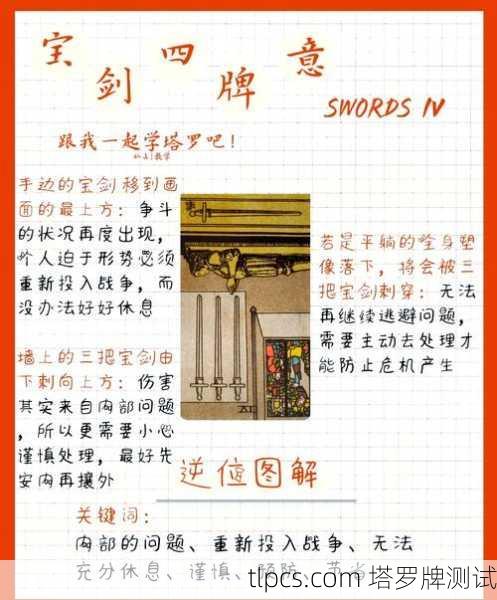 宝剑四牌意
SWORDS IV
跟我一起学塔罗吧！
手边的宝剑移到画
面的最上方：争斗
的状况再度出现，
个人迫于形势必须
重新投入战争，而
没办法好好休息
墙上的三把宝剑由
下刺向上方：伤害
其实来自内部问题
，所以更需要小心
谨慎处理，最好先
安内再攘外
若是平躺的全身塑
像落下，将会被三
把宝剑刺穿：无法
再继续逃避问题，
需要主动去处理才
能防止危机产生
逆位图解
关键词：
内部的问题、重新投入战争、无法
充分休息、谨慎、预防、节省
tlpcs.com 塔罗牌测试